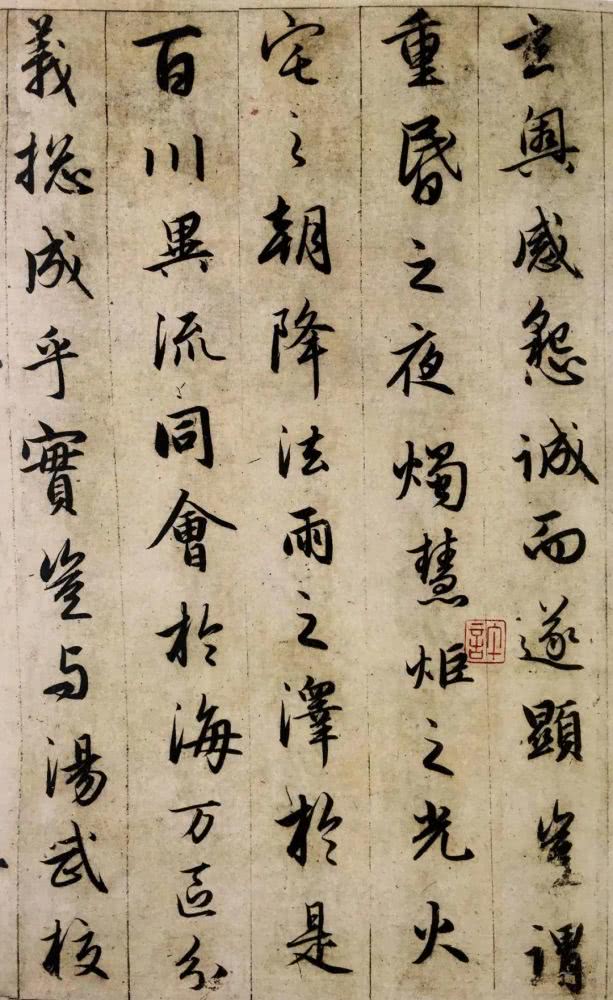 玄奧感懇誠而遂顯豈謂
重昬之夜燭慧炬之光火
宅之朝降法雨之澤於是
百川異流同會於海万區分
義揔成乎實豈与湯武校
許